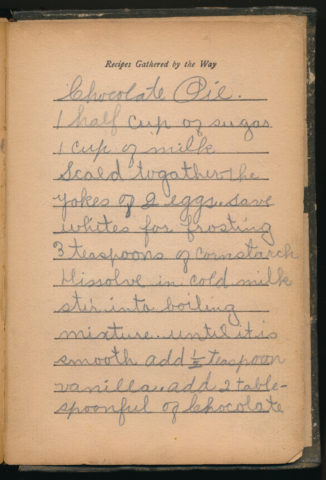 Recipes Gathered by the Way
Chocolate Pie.
1 half cup of sugar
1 cup of milk
Scald togather the
yokes of 2 eggs. save
whites for frosting
3 teaspoons of cornstarch
Dissolve in cold milk
stir into boiling
mixture until it is
smooth add ½ teaspoon
vanilla. add 2 table-
spoonful of Chocolate